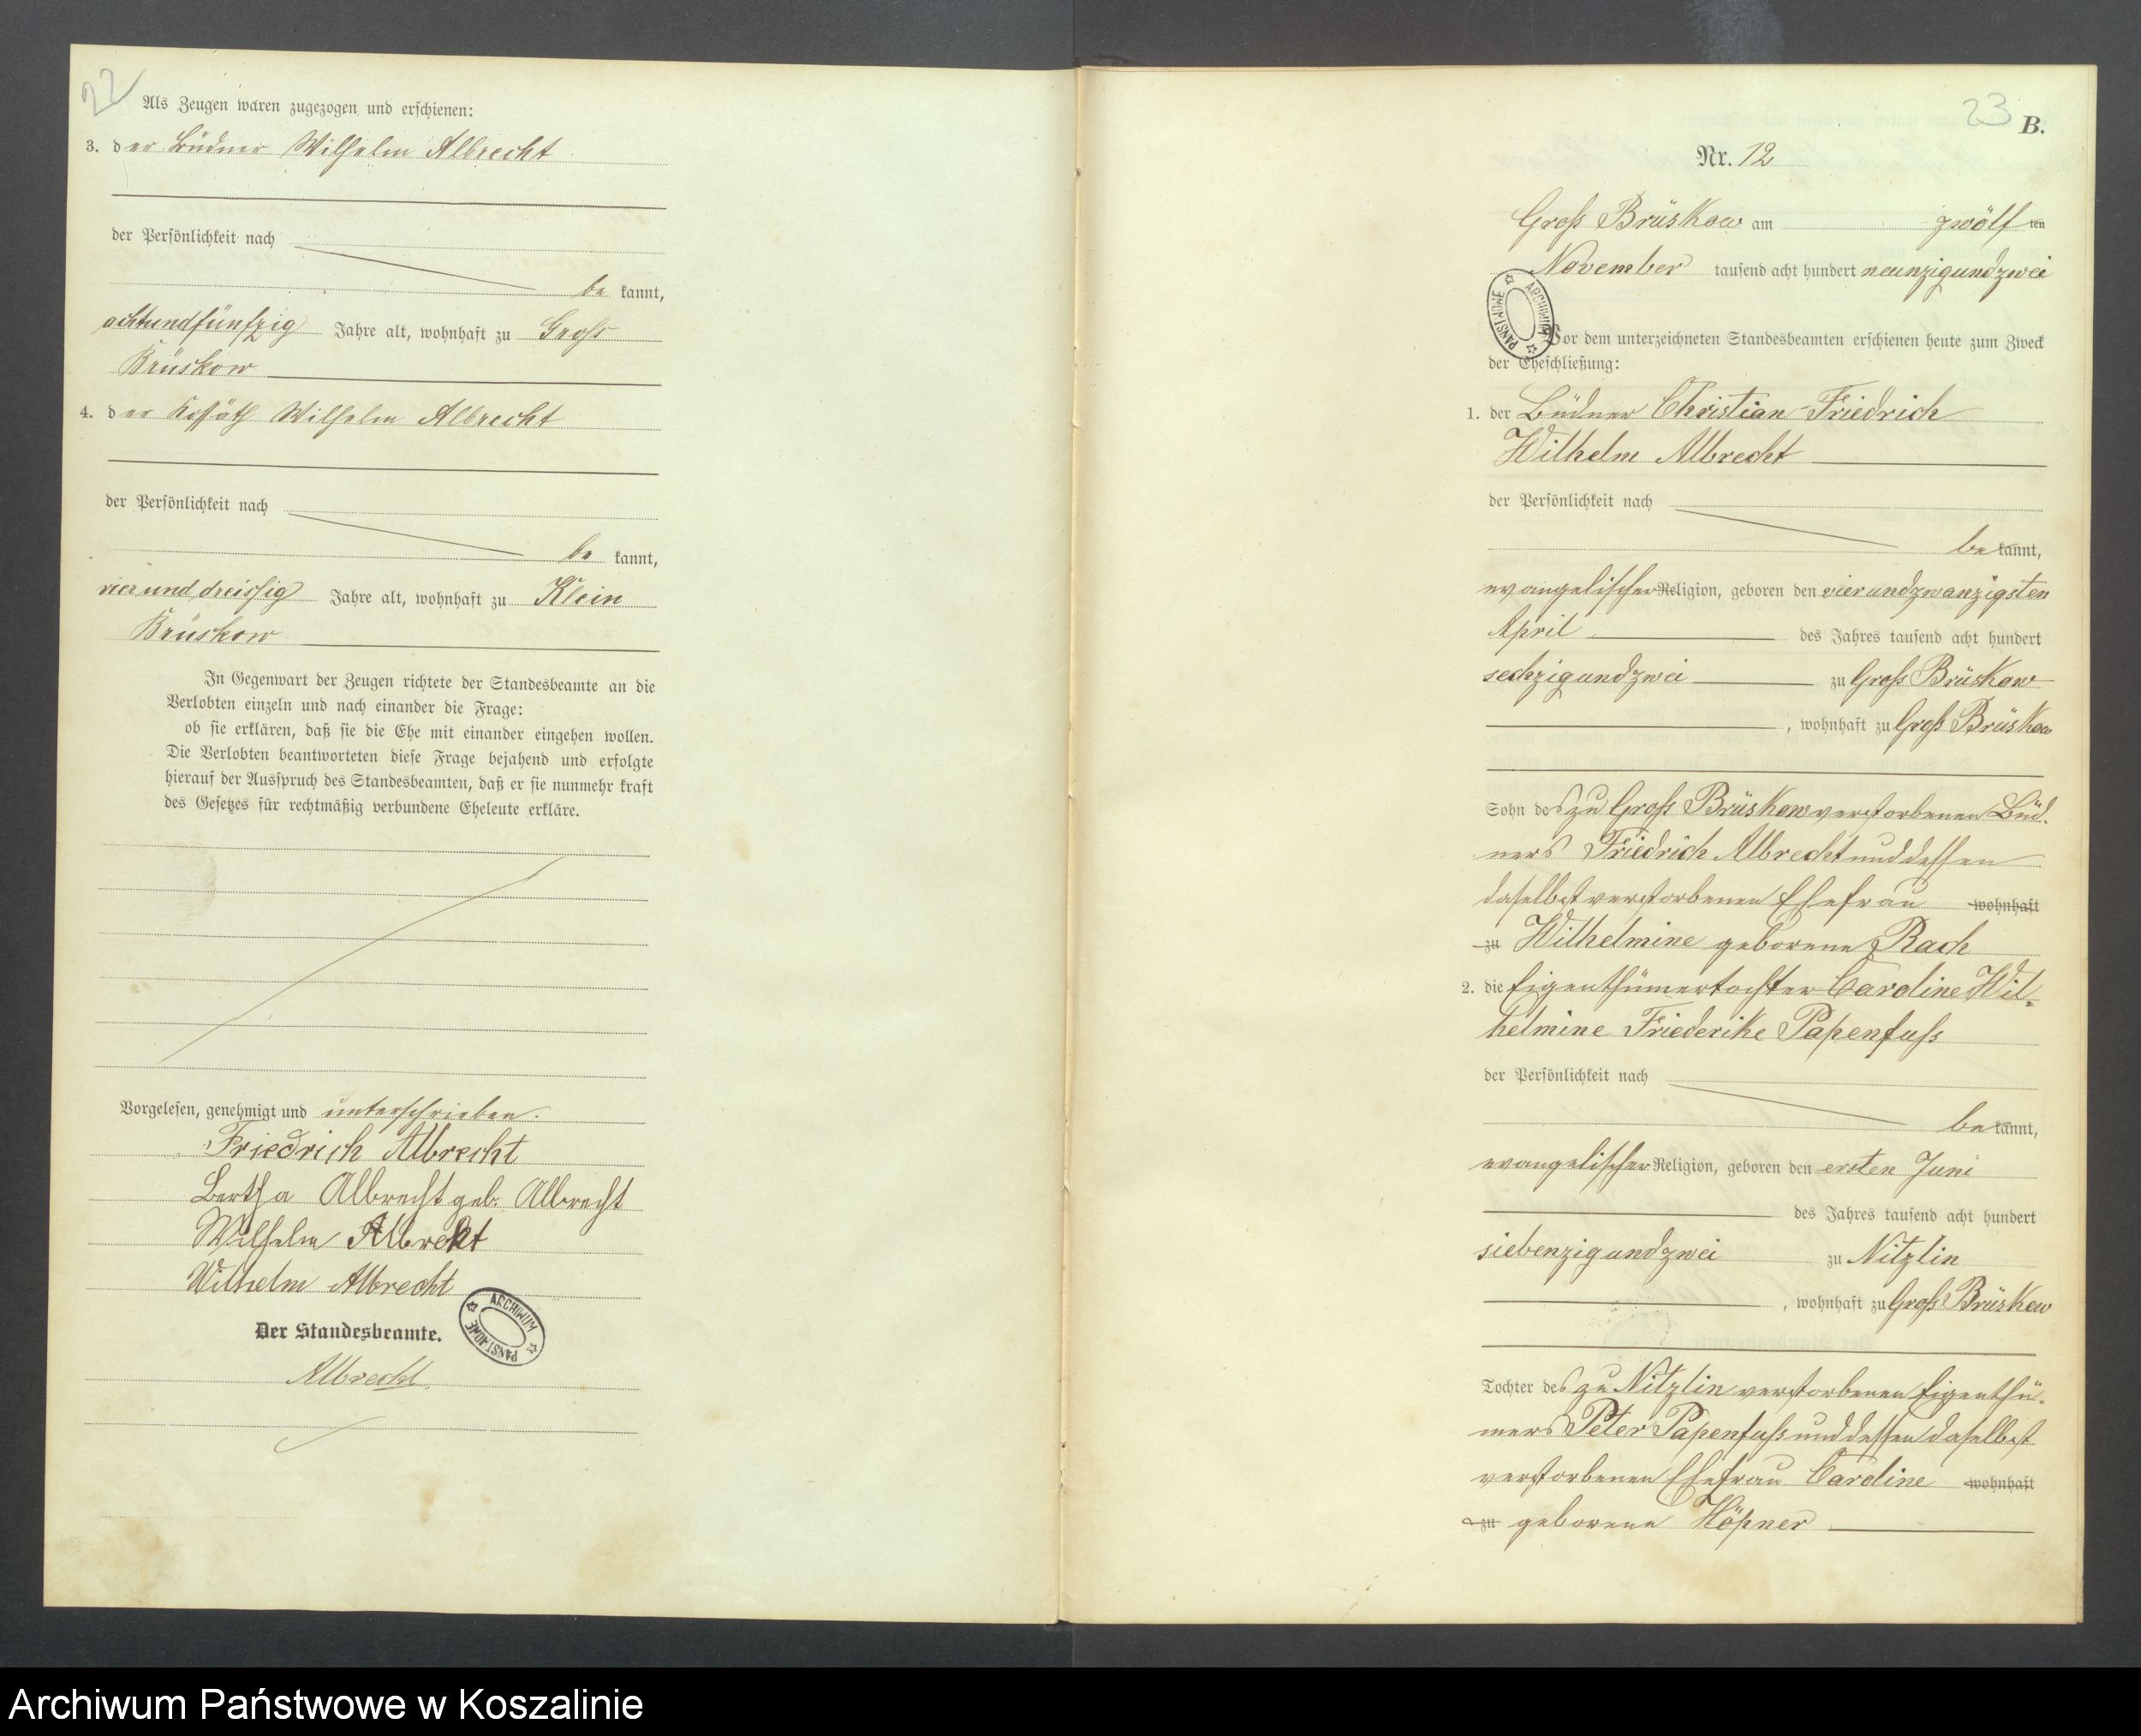 22
Als Zeugen waren zugezogen und erschienen:
3. der Büdner Wilhelm Albrecht
der Persönlichkeit nach
be kannt,
achtundfünfzig Jahre alt, wohnhaft zu Gross
Brüskow
4. der Kossäth Wilhelm Albrecht
der Persönlichkeit nach
be kannt,
vierunddreissig Jahre alt, wohnhaft zu Klein
Brüskow
In Gegenwart der Zeugen richtete der Standesbeamte an die
Verlobten einzeln und nach einander die Frage:
ob sie erklären, daß sie die Ehe mit einander eingehen wollen.
Die Verlobten beantworteten diese Frage bejahend und erfolgte
hierauf der Ausspruch des Standesbeamten, daß er sie nunmehr kraft
des Gesetzes für rechtmäßig verbundene Eheleute erkläre.
Vorgelesen, genehmigt und unterschrieben.
Friedrich Albrecht
Bertha Albrecht geb. Albrecht
Wilhelm Albrecht
Wilhelm Albrecht
Der Standesbeamte.
ARCHIWUM PAŃSTWOWE
Albrecht.
23
B.
Nr. 12
Gross Brüskow am zwölf ten
November tausend acht hundert neunzigundzwei
ARCHIWUM PAŃSTWOWE
Vor dem unterzeichneten Standesbeamten erschienen heute zum Zweck
der Eheschließung:
1. der Büdner Christian Friedrich
Wilhelm Albrecht
der Persönlichkeit nach
be kannt,
evangelischer Religion, geboren den vierundzwanzigsten
April des Jahres tausend acht hundert
sechzigundzwei zu Gross Brüskow
, wohnhaft zu Gross Brüskow
Sohn des zu Gross Brüskow verstorbenen Büd-
ners Friedrich Albrecht und dessen
daselbst verstorbenen Ehefrau wohnhaft
zu Wilhelmine geborene Rach
2. die Eigenthümertochter Caroline Wil-
helmine Friederike Papenfuss
der Persönlichkeit nach
be kannt,
evangelischer Religion, geboren den ersten Juni
des Jahres tausend acht hundert
siebenzigundzwei zu Nitzlin
, wohnhaft zu Gross Brüskow
Tochter des zu Nitzlin verstorbenen Eigenthü-
mers Peter Papenfuss und dessen daselbst
verstorbenen Ehefrau Caroline wohnhaft
zu geborene Höpner
Archiwum Państwowe w Koszalinie